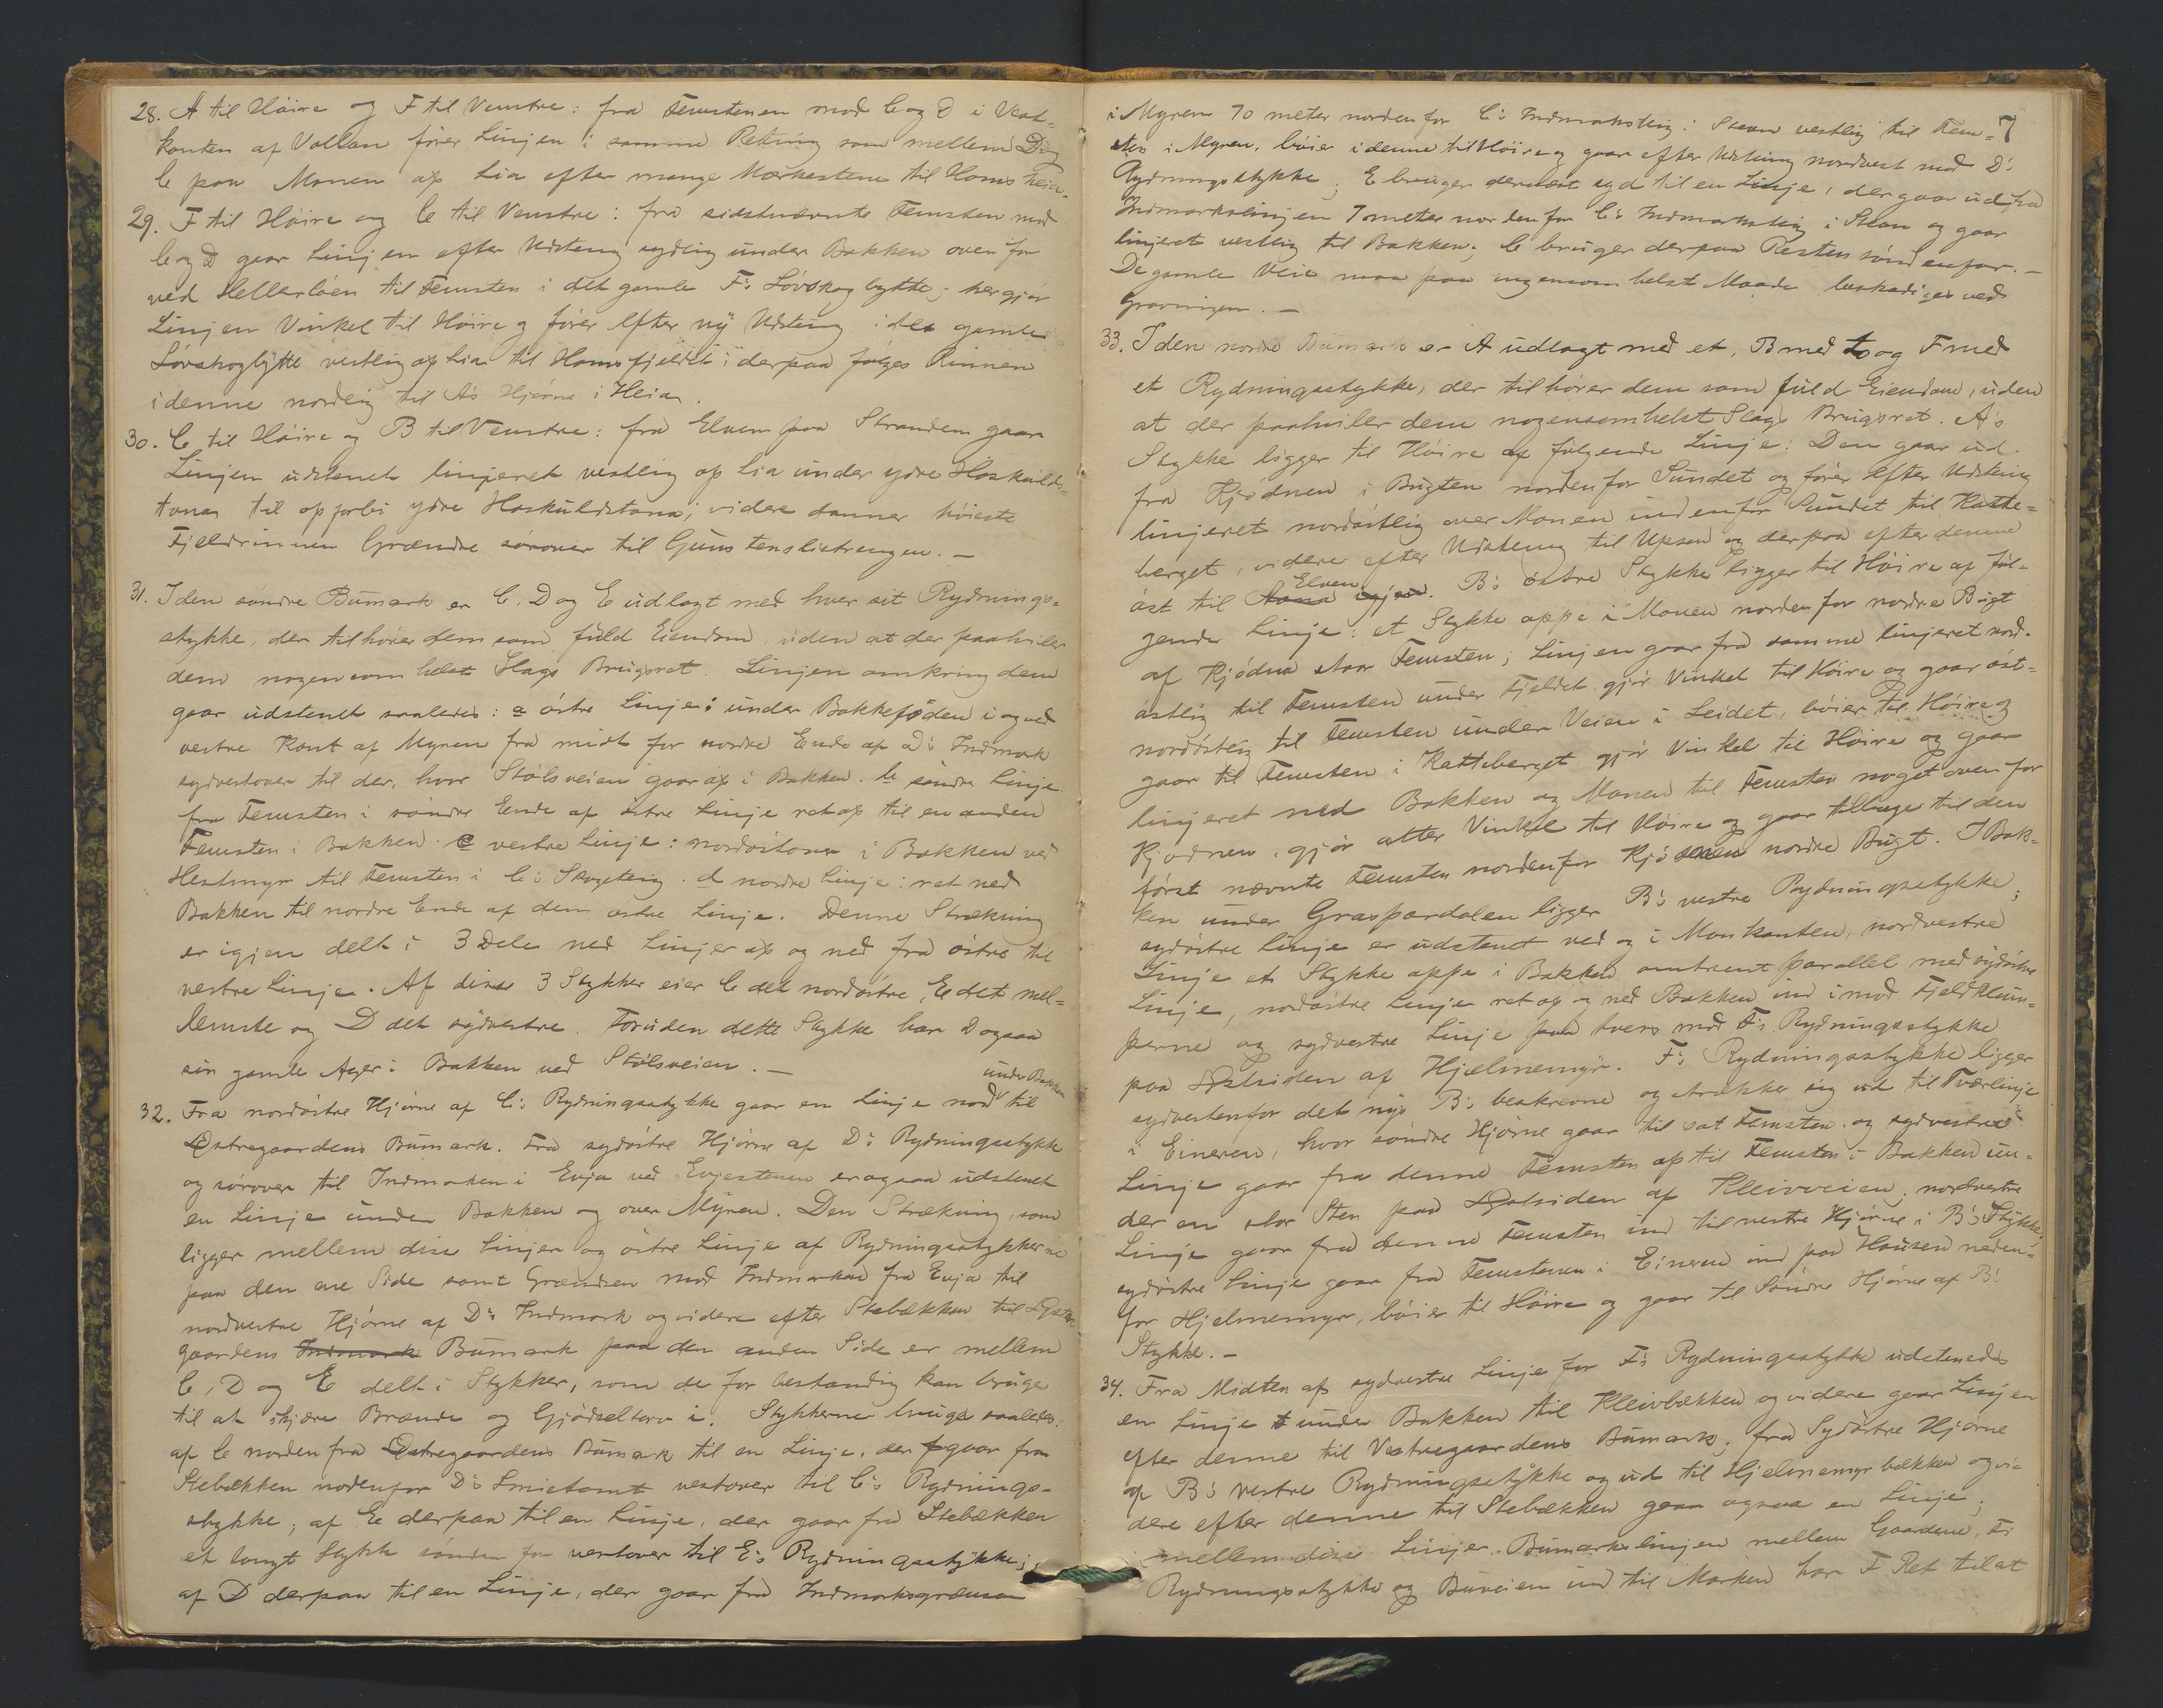 28. A til Höire og F til Venstre: fra Temstenen mod C og D i Vest-
kanten af Vollan förer Linjen i samme Retning som mellem D og
C paa Monen op Lia efter mange Mærkestene til Homsheia.
29. F til Höire og C til Venstre: fra sidstnævnte Temsten mod
C og D gaar Linjen efter Udstening sydlig under Bakken oven for
ved Hellerlöen til Temsten i det gamle F's Lövskoglytte; her gjör
Linjen Vinkel til Höire og förer efter ny Udstening i det gamle
Lövskoglytte vestlig op Lia til Homsfjeldet; derpaa fölges Rinnen
i denne nordlig til A's Hjörne i Heia.
30. C til Höire og B til Venstre: fra Elven paa Stranden gaar
Linjen udstenet linjeret vestlig op Lia under ydre Hoskulds-
tona til op forbi ydre Hoskuldstona; videre danner höieste
Fjeldrinnen Grændse sörover til Gunstenslietrengen. —
31. I den söndre Bumark er C, D og E udlagt med hver sit Rydnings-
stykke, der tilhörer dem som fuld Eiendom uden at der paahviler
dem nogensomhelst Slags Brugsret. Linjen omkring dem
gaar udstenet saaledes: a östre Linje: under Bakkefoden i og ved
vestre Kant af Myren fra midt for nordre Ende af D's Indmark
sydvestover til der, hvor Stölsveien gaar op i Bakken. b söndre Linje
fra Temsten i söndre Ende af östre Linje ret op til en anden
Temsten i Bakken. c vestre Linje: nordöstover i Bakken ved
Hestmyr til Temsten i C's Skogeteig. d nordre Linje: ret ned
Bakken til nordre Ende af den östre Linje. Denne Strækning
er igjen delt i 3 Dele ved Linjer op og ned fra östre til
vestre Linje. Af disse 3 Stykker eier C det nordöstre, E det mel-
lemste og D det sydvestre. Foruden dette Stykke har D ogsaa
sin gamle Ager i Bakken ved Stölsveien. —
under Bakken
32. Fra nordöstre Hjörne af C's Rydningsstykke gaar en Linje nord til
Østregaardens Bumark. Fra sydöstre Hjörne af D's Rydningsstykke
og sörover til Indmarken i Evja ved Evjestenen er ogsaa udstenet
en Linje under Bakken og over Myren. Den Strækning, som
ligger mellem disse Linjer og östre Linje af Rydningsstykkerne
paa den ene Side samt Grændsen mod Indmarken fra Evja til
nordvestre Hjörne af D's Indmark og videre efter Stebækken til Østre
gaardens Indmark Bumark paa den anden Side er mellem
C, D og E delt i Stykker, som de for bestandig kan bruge
til at skjære Brænde og Gjödseltorv i. Stykkerne bruges saaledes:
af C norden fra Østregaardens Bumark til en Linje, der gaar fra
Stebækken nordenfor D's Smietomt vestover til C's Rydnings-
stykke; af E derpaa til en Linje, der gaar fra Stebækken
et langt Stykke sönden for vestover til E's Rydningsstykke;
af D derpaa til en Linje, der gaar fra Indmarksgrænsen
7
i Myren 70 meter norden for C's Indmarksteig i Stean vestlig til Tem-
sten i Myren, böier i denne til Höire og gaar efter Udstening nordvest mod D's
Rydningsstykke; E bruger dernæst syd til en Linje, der gaar ud fra
Indmarkslinjen 7 meter norden for C's Indmarksteig i Stean og gaar
linjeret vestlig til Bakken; C bruger derpaa Resten söndenfor. —
De gamle Veie maa paa ingensomhelst Maade beskadiges ved
Gravningen. —
33. I den nordre Bumark er A udlagt med et, B med to og F med
et Rydningsstykke, der tilhörer dem som fuld Eiendom, uden
at der paahviler dem nogensomhelst Slags Brugsret. A's
Stykke ligger til Höire af fölgende Linje: Den gaar ud
fra Kjödnen i Bugten nordenfor Sundet og förer efter Udstening
linjeret nordöstlig over Monen indenfor Sundet til Katte-
berget, videre efter Udstening til Upsen og derpaa efter denne
Elven
öst til Aana igjen. B's östre Stykke ligger til Höire af föl-
gende Linje: et Stykke oppe i Monen norden for nordre Bugt
af Kjödna staar Temsten; Linjen gaar fra samme linjeret nord-
östlig til Temsten under Fjeldet, gjör Vinkel til Höire og gaar öst-
nordöstlig til Temsten under Veien i Leidet, böier til Höire og
gaar til Temsten i Katteberget gjör Vinkel til Höire og gaar
linjeret ned Bakken og Monen til Temsten noget oven for
Kjödnen, gjör atter Vinkel til Höire og gaar tilbage til den
först nævnte Temsten nordenfor Kjödnens nordre Bugt. I Bak-
ken under Graspardalen ligger B's vestre Rydningsstykke;
sydöstre Linje er udstenet ved og i Monkanten, nordvestre
Linje et Stykke oppe i Bakken omtrent parallel med sydöstre
Linje, nordöstre Linje ret op og ned Bakken ind imod Fjeldklum-
perne og sydvestre Linje paa tvers mod F's Rydningsstykke
paa Østsiden af Hjælmemyr. F's Rydningsstykke ligger
sydvestenfor det nys B's beskrevne og strækker sig ud til Tværlinje
i Eineren, hvor söndre Hjörne gaar til sat Temsten. og sydvestre
Linje gaar fra denne Temsten op til Temsten i Bakken un-
der en stor Sten paa Østsiden af Kleivveien; nordvestre
Linje gaar fra denne Temsten ind til vestre Hjörne i B's Stykke,
sydöstre Linje gaar fra Temstenen i Eineren ind paa Hausen neden-
for Hjelmemyr, böier til Höire og gaar til Söndre Hjörne af B's
Stykke. —
34. Fra Midten af sydvestre Linje for F's Rydningsstykke udstenedes
en Linje under Bakken til Kleivbækken og videre gaar Linjen
efter denne til Vestregaardens Bumark; fra Sydöstre Hjörne
af B's vestre Rydningsstykke og ud til Hjelmemyrbækken og vi-
dere efter denne til Stebækken gaar ogsaa en Linje;
mellem disse Linjer, Bumarkslinjen mellem Gaardene, F's
Rydningsstykke og Buveien ind til Marken har F Ret til at